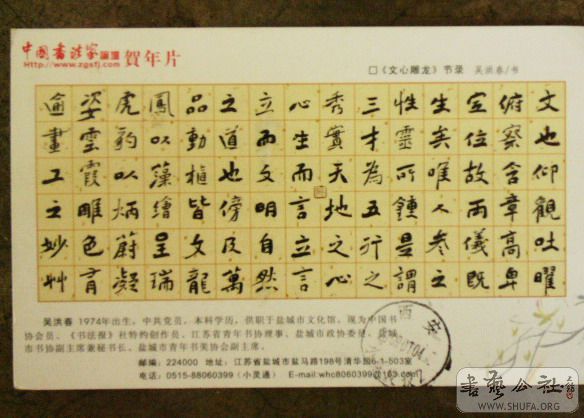 中国书法家論壇 賀年片
Http://www.zgsfj.com
□《文心雕龙》节录 吴洪春/书
文也仰觀吐曜
俯察含章高卑
定位故兩儀既
生矣唯人參之
性靈所鍾是謂
三才為五行之
秀實天地之心
心生而言立言
立而文明自然
之道也傍及萬
品動植皆文龍
鳳以藻繪呈瑞
虎豹以炳蔚凝
姿雲霞雕色有
逾畫工之妙艸
吴洪春 1974年出生，中共党员，本科学历，供职于盐城市文化馆。现为中国书
协会员、《书法报》社特约创作员、江苏省青年书协理事、盐城市政协委员、盐城
市书协副主席兼秘书长、盐城市青年书美协会副主席。
邮编：224000 地址：江苏省盐城市盐马路198号清华园6-1-503室
电话：0515-88060399（小灵通） E-mail:whc8060399@
西安
書藝公社
WWW.SHUFA.ORG